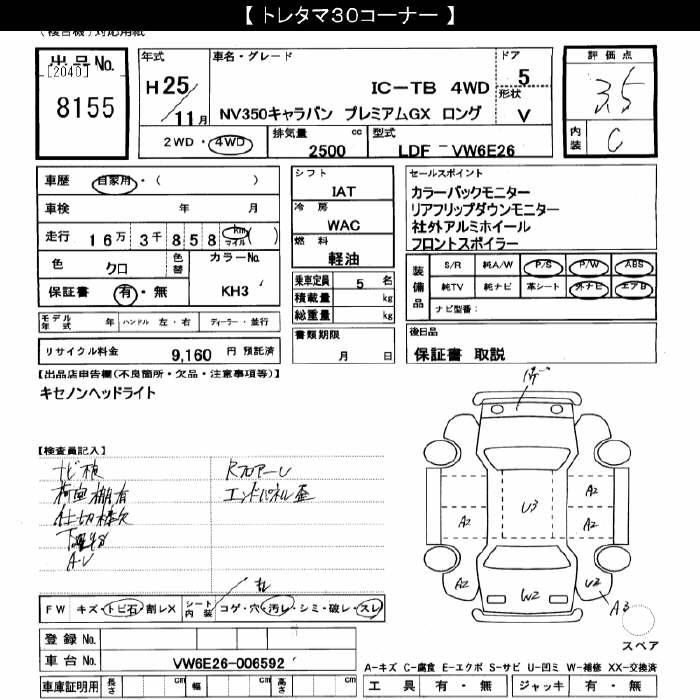 【 トレタマ30コーナー 】
出品No.
[2040]
8155
年式
H25
11月
車名・グレード
IC-TB 4WD
NV350キャラバン プレミアムGX ロング
ドア
5
形状
V
2WD・4WD
排気量
2500 cc
型式
LDF - VW6E26
評価点
3.5
内装
C
車歴
自家用・( )
車検 年 月
走行
16万3千858 km マイル ( )
色
クロ
色替
カラーNo.
KH3
保証書 有・無
モデル年式 年 ハンドル 左・右 ディーラー・並行
リサイクル料金 9,160 円 預託済
シフト
IAT
冷房
WAC
燃料
軽油
乗車定員 5 名
積載量 kg
総重量 kg
書類期限
月 日
セールスポイント
カラーバックモニター
リアフリップダウンモニター
社外アルミホイール
フロントスポイラー
装備品
S/R 純A/W P/S P/W ABS
純TV 純ナビ 革シート 外ナビ エアB
ナビ型番:
後日品
保証書 取説
【出品店申告欄(不良箇所・欠品・注意事項等)】
キセノンヘッドライト
【検査員記入】
荷室棚有
A-U
エンドパネル歪
FW キズ・トビ石・割レX
シート内装 コゲ・穴・汚レ・シミ・破レ・スレ
登録No.
車台No. VW6E26-006592
車庫証明用 長さ cm 幅 cm 高さ cm
A2
A2
A2
U3
A2
W2
U2
A3
スペア
A-キズ C-腐食 E-エクボ S-サビ U-凹ミ W-補修 XX-交換済
工具 有・無 ジャッキ 有・無